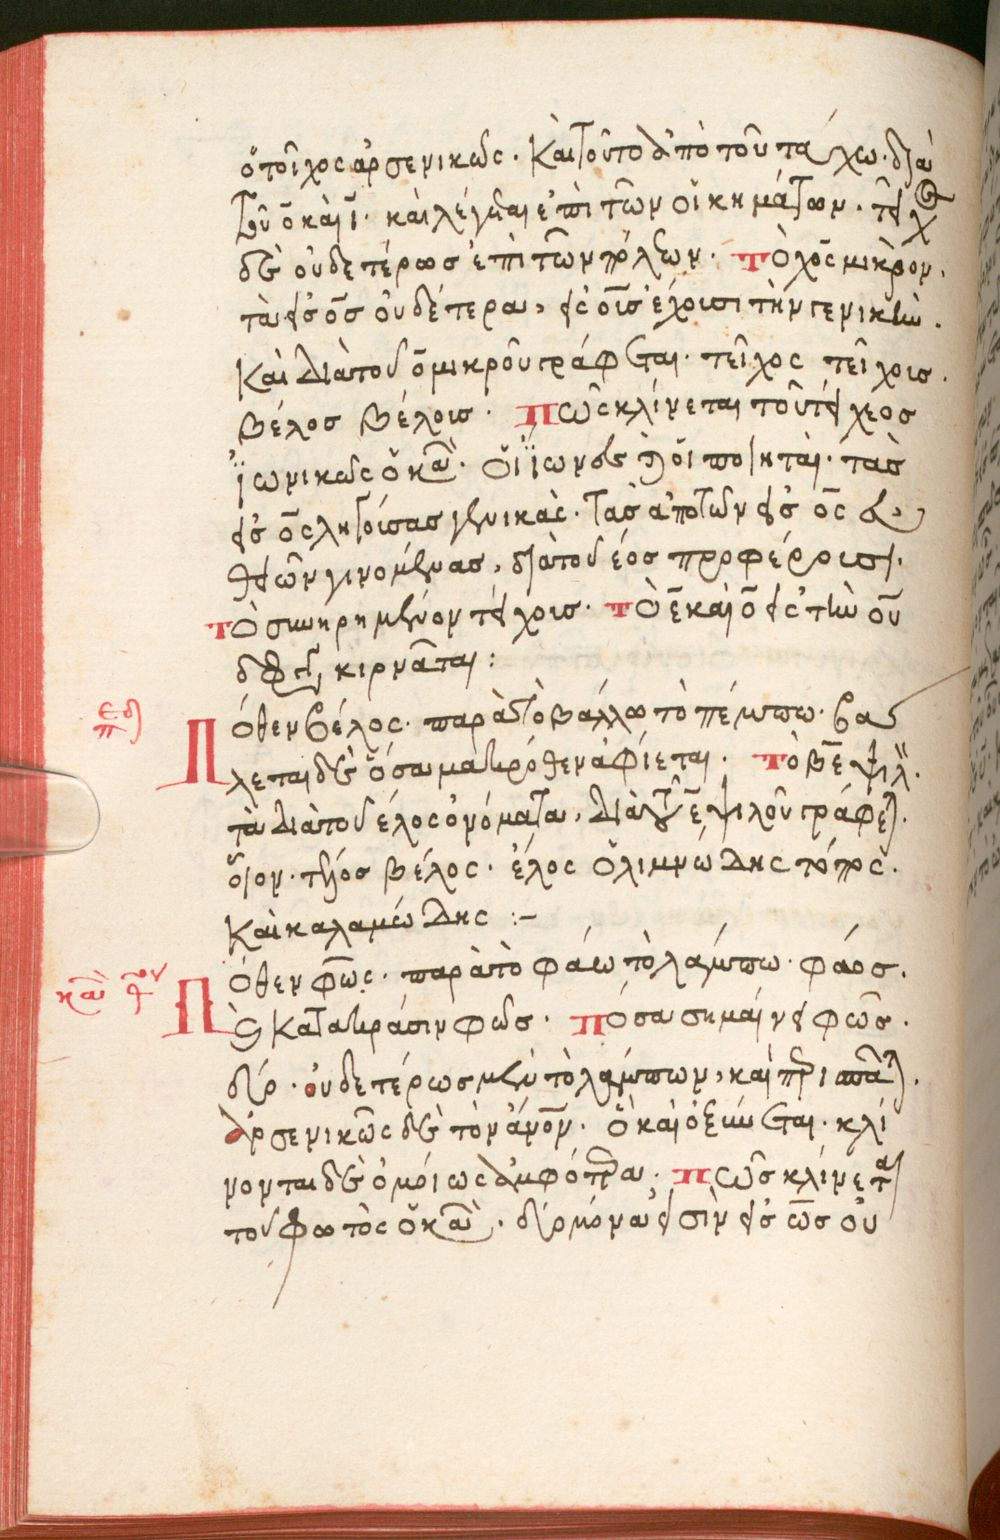 ὁ τοῖχος ἀρσενικῶς. Καὶ τοῦτο ἀπὸ τοῦ τάχω. διὰ
τοῦ ο καὶ ϊ. καὶ λέγεται ἐπὶ τῶν οἰκημάτων. τεῖχος
δὲ οὐδετέρως ἐπὶ τῶν πόλεων. Τὸ χος μικρὸν.
τὰ εἰς ος οὐδέτερα, εἰς ους ἔχουσι τὴν γενικὴν.
Καὶ διὰ τοῦ ο μικροῦ γράφεται. τεῖχος τείχους.
βέλος βέλους. Πῶς κλίνεται τοῦ τείχεος
ἰωνικῶς οὐκαν. Οἱ ἴωνες καὶ οἱ ποιηταὶ. τὰς
εἰς ος ληγούσας γενικὰς. τὰς ἀπὸ τῶν εἰς ος εὐ
θειῶν γινομένας, διὰ τοῦ έος προφέρουσι.
Τὸ συνῃρημένον τείχους. Τὸ ε καὶ ο εἰς τὴν ου
δίφθογγον κιρνᾶται:
Πόθεν βέλος. παρὰ τὸ βάλλω τὸ πέμπω. βάλ
λεται δὲ ὅσα μακρόθεν ἀφίεται. Τὸ βε ψιλ.
τὰ διὰ τοῦ έλος ὀνόματα, διὰ τοῦ ε ψιλοῦ γράφεται.
οἷον. τέλος βέλος. ἕλος ὁ λιμνώδης τόπος.
Καὶ καλαμώδης :-
Πόθεν φῶς. παρὰ τὸ φάω τὸ λάμπω. φάος.
καὶ κατὰ κράσιν φῶς. Πόσα σημαίνει φῶς.
δύο. οὐδετέρως μὲν τὸ λάμπων, καὶ περισπᾶται.
ἀρσενικῶς δὲ τὸν ἄνον. ὃ καὶ ὀξύνεται. κλί
νονται δὲ ὁμοίως ἀμφότερα. Πῶς κλίνεται
τοῦ φωτὸς οὐκαν. δύο μόνα εἰσὶν εἰς ως οὐ